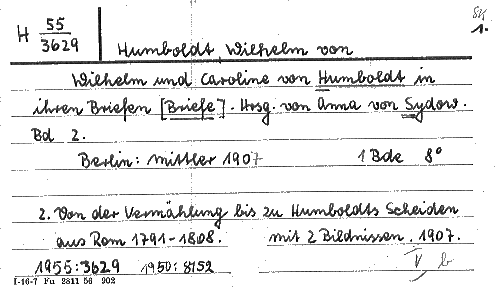 H 55/3629
1.
Humboldt, Wilhelm von
Wilhelm und Caroline von Humboldt in
ihren Briefen [Briefe]. Hrsg. von Anna von Sydow.
Bd 2.
Berlin: Mittler 1907 1 Bde 8°
2. Von der Vermählung bis zu Humboldts Scheiden
aus Rom 1791-1808. mit 2 Bildnissen. 1907.
1955:3629 1950:8152
I-16-7 Fu 2811 56 902